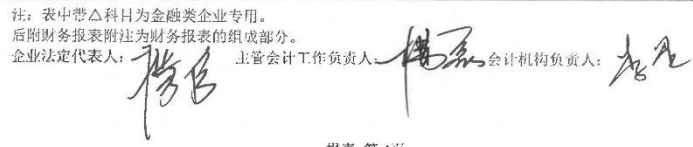 注：表中带△科目为金融类企业专用。
后附财务报表附注为财务报表的组成部分。
企业法定代表人： 主管会计工作负责人： 会计机构负责人：